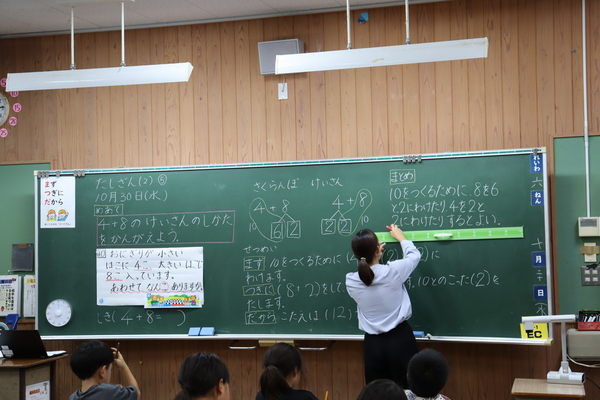 まず
つぎに
だから
たしざん(2) ⑤
10月30日(水)
めあて
4+8のけいさんのしかた
をかんがえよう。
おにぎりが 小さい
はこに 4こ、大きい はこで
8こ 入っています。
あわせて なんこ ありますか。
しき(4+8= )
さくらんぼ けいさん
4+8
10
6 2
4+8
2 2
10
せつめい
まず 10をつくるために
に
わけます。
つぎに (8+2)をして
10とのこった(2)を
たします。
だから こたえは(12)
まとめ
10をつくるために 8を6
と2にわけたり 4を2と
2にわけたりするとよい。
れいわ
六
ねん
十
月
三十
日
水
EC